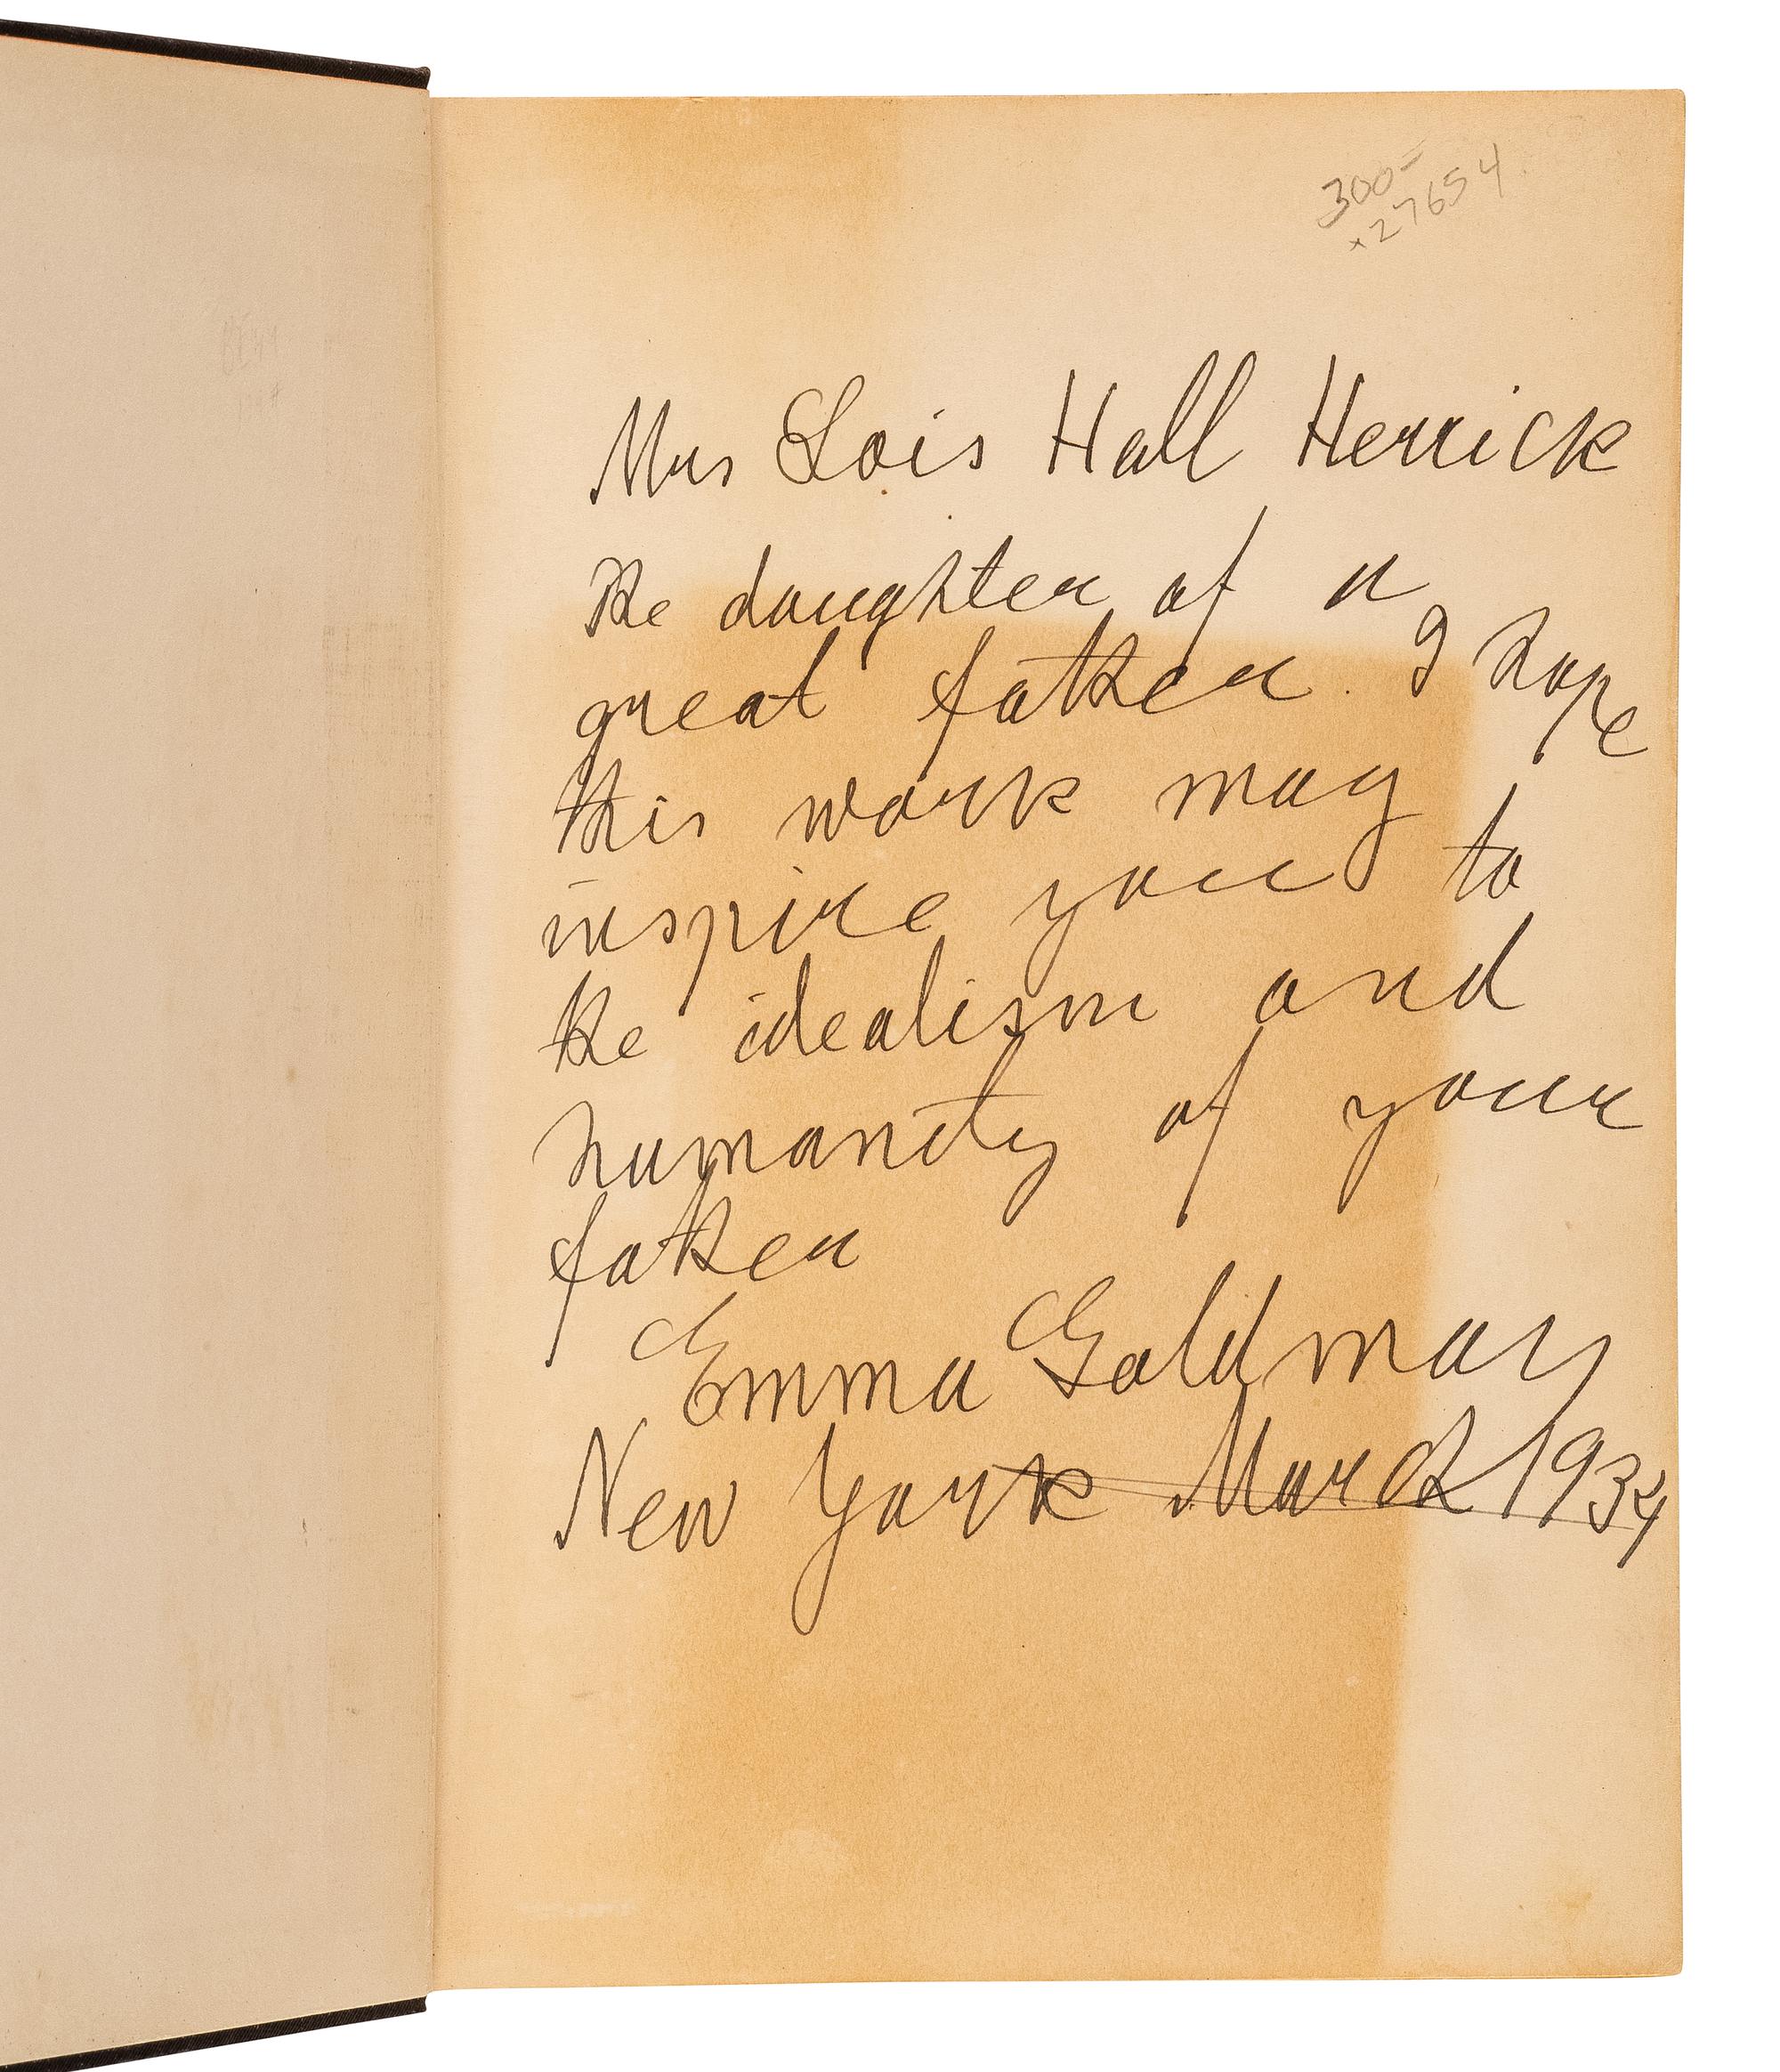 300-
x27654
Mrs Lois Hall Herrick
The daughter of a
great father. I hope
this work may
inspire you to
the idealism and
humanity of your
father
Emma Goldman
New York March 1934